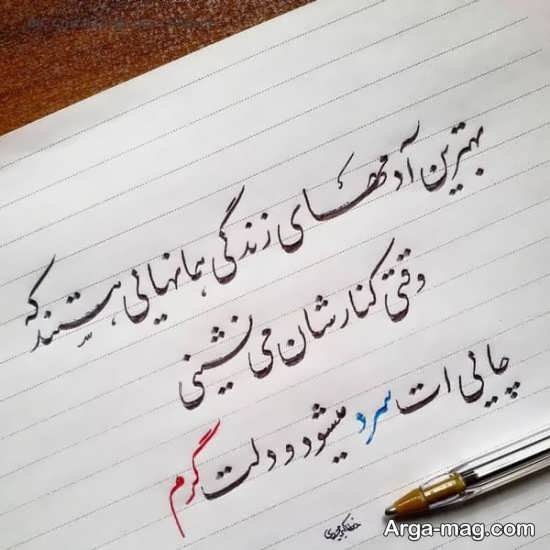 بهترین آدمهای زندگی همانهایی هستند که
وقتی کنارشان می نشینی
چایی ات سرد میشود و دلت گرم
Arga-mag.com